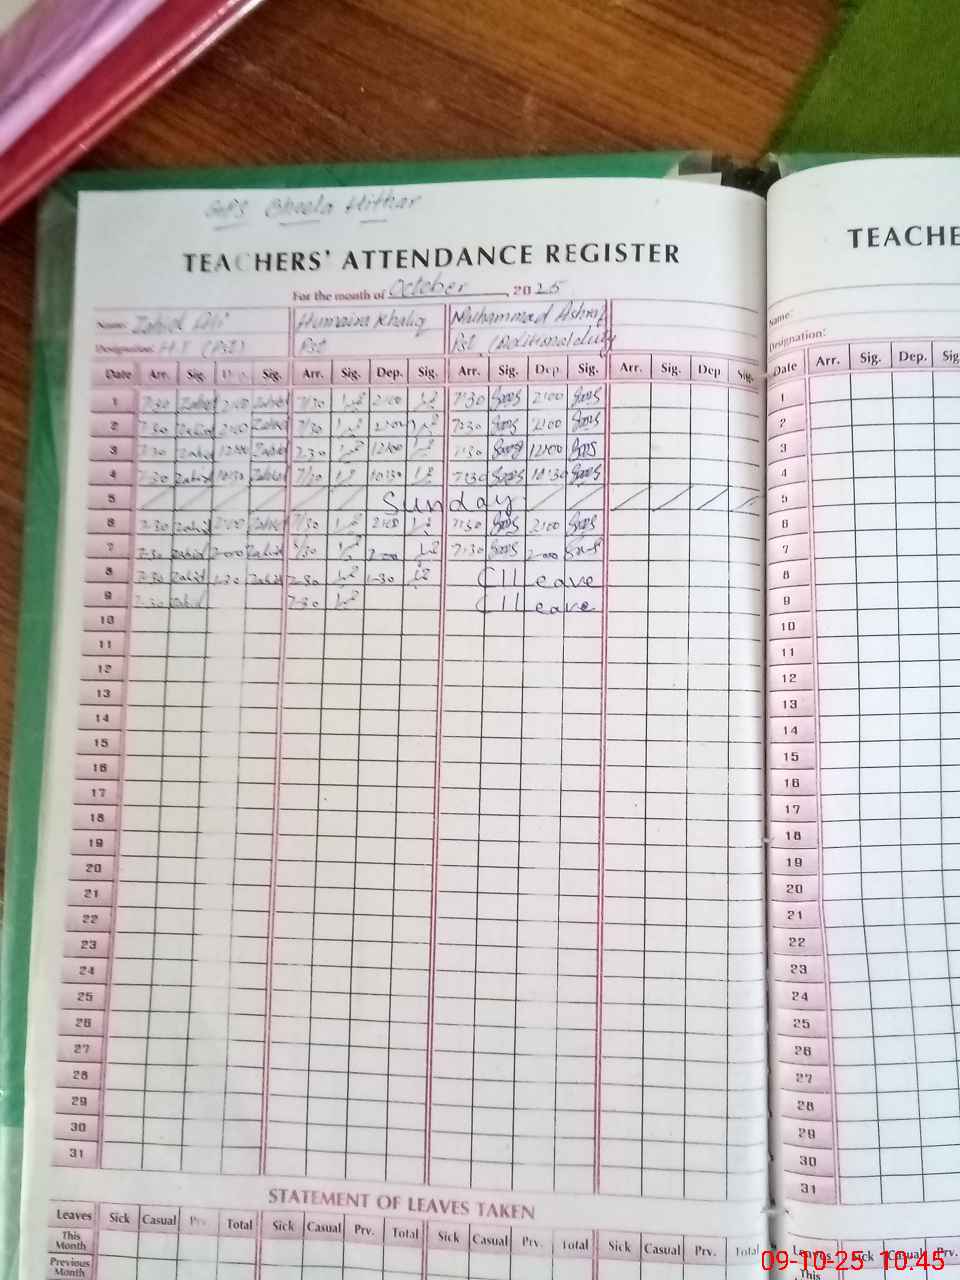 GPS Bheela Hithar
TEACHERS' ATTENDANCE REGISTER
For the month of October 2025
Name: Zahid Ali Humaira Khaliq Muhammad Ashraf
Designation: H.T (Pst) Pst Pst (Additional duty
Date Arr. Sig. Dep. Sig. Arr. Sig. Dep. Sig. Arr. Sig. Dep. Sig. Arr. Sig. Dep Sig.
1 7-30 Zahid 2:00 Zahid 7/30 2:00 7:30 2:00
2 7-30 Zahid 2:00 Zahid 7/30 2:00 7:30 2:00
3 7-30 Zahid 12:00 Zahid 7-30 12:00 7:30 12:00
4 7-30 Zahid 10:30 Zahid 7/30 10:30 7:30 10:30
5 Sunday
6 7-30 Zahid 2:00 Zahid 7/30 2:00 7:30 2:00
7 7-30 Zahid 2-00 Zahid 7/30 2-00 7:30 2-00
8 7-30 Zahid 1-30 Zahid 7-30 1-30 C/Leave
9 7-30 Zahid 7-30 C/Leave
10
11
12
13
14
15
16
17
18
19
20
21
22
23
24
25
26
27
28
29
30
31
STATEMENT OF LEAVES TAKEN
Leaves Sick Casual Prv. Total Sick Casual Prv. Total Sick Casual Prv. Total Sick Casual Prv. Total
This Month
Previous Month
TEACHE
Name:
Designation:
Date Arr. Sig. Dep. Sig
1
2
3
4
5
6
7
8
9
10
11
12
13
14
15
16
17
18
19
20
21
22
23
24
25
26
27
28
29
30
31
Leaves Sick Casual Prv.
This
09-10-25 10.45